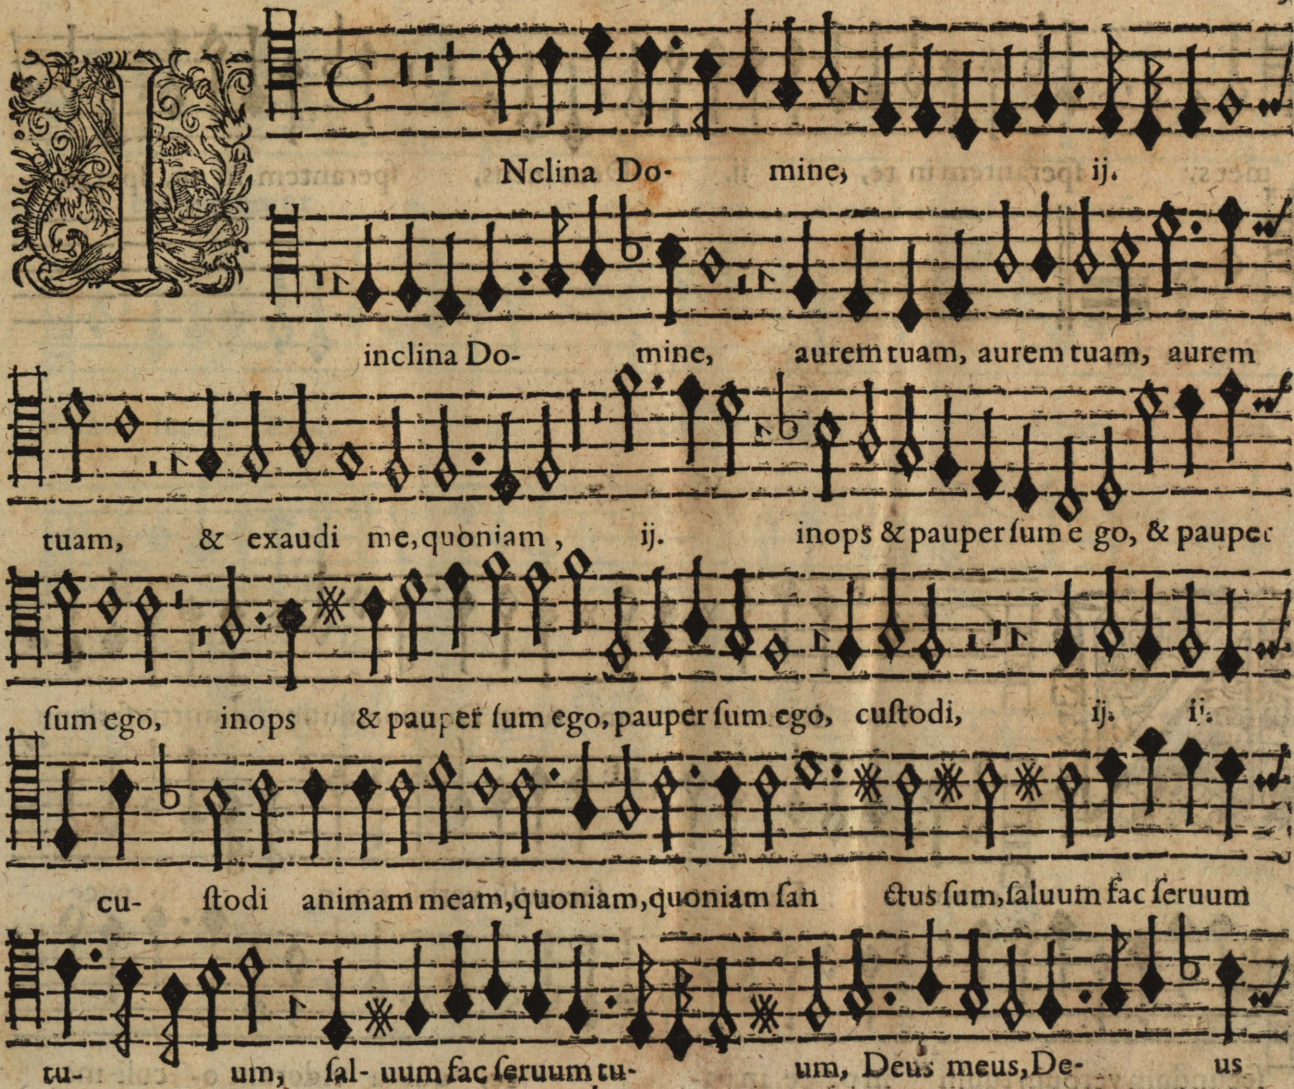 INclina Do- mine, ij.
inclina Do- mine, aurem tuam, aurem tuam, aurem
tuam, & exaudi me, quoniam, ij. inops & pauper ſum e go, & pauper
ſum ego, inops & pauper ſum ego, pauper ſum ego, cuſtodi, ij. ij.
cu- ſtodi animam meam, quoniam, quoniam ſan ctus ſum, ſaluum fac ſeruum
tu- um, ſal- uum fac ſeruum tu- um, Deus meus, De- us